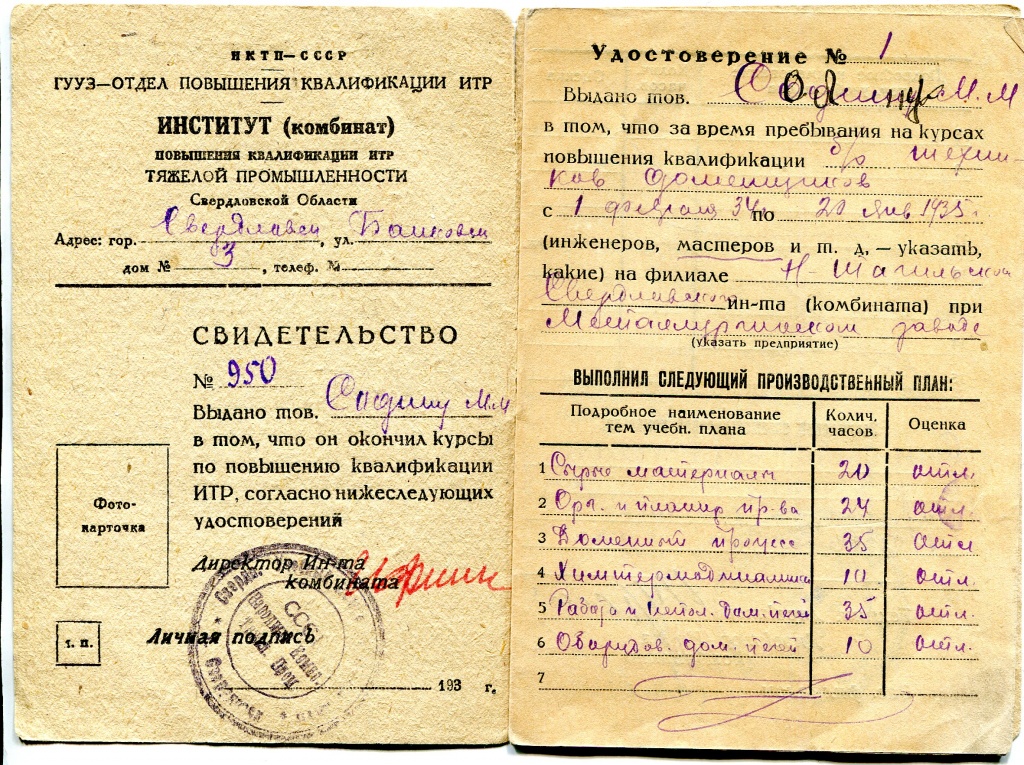 НКТП—СССР
ГУУЗ—ОТДЕЛ ПОВЫШЕНИЯ КВАЛИФИКАЦИИ ИТР
ИНСТИТУТ (комбинат)
ПОВЫШЕНИЯ КВАЛИФИКАЦИИ ИТР
ТЯЖЕЛОЙ ПРОМЫШЛЕННОСТИ
Свердловской Области
Адрес: гор. Свердловск, ул.
дом № 3, телеф. №
СВИДЕТЕЛЬСТВО
№ 950
Выдано тов. М.М
в том, что он окончил курсы
по повышению квалификации
ИТР, согласно нижеследующих
удостоверений
Фото-
карточка
Директор Ин-та
комбината
т. п.
Личная подпись
СССР
193 г.
Удостоверение № 1
Выдано тов. М.М
в том, что за время пребывания на курсах
повышения квалификации б/о техни-
ков доменщиков
с 1 февраля 34 г. по 20 янв 1935 г.
(инженеров, мастеров и т. д, — указать,
какие) на филиале Н-Тагильском
Свердловского ин-та (комбината) при
Металлургическом заводе
(указать предприятие)
ВЫПОЛНИЛ СЛЕДУЮЩИЙ ПРОИЗВОДСТВЕННЫЙ ПЛАН:
Подробное наименование тем учебн. плана Колич. часов Оценка
1 Сырые материалы 20 отл.
2 Орг. и планир пр-ва 24 отл.
3 Доменный процесс 35 отл
4 Химтермодинамика 10 отл.
5 Работа и дом. печей 35 отл.
6 Оборудов. дом. печей 10 отл.
7